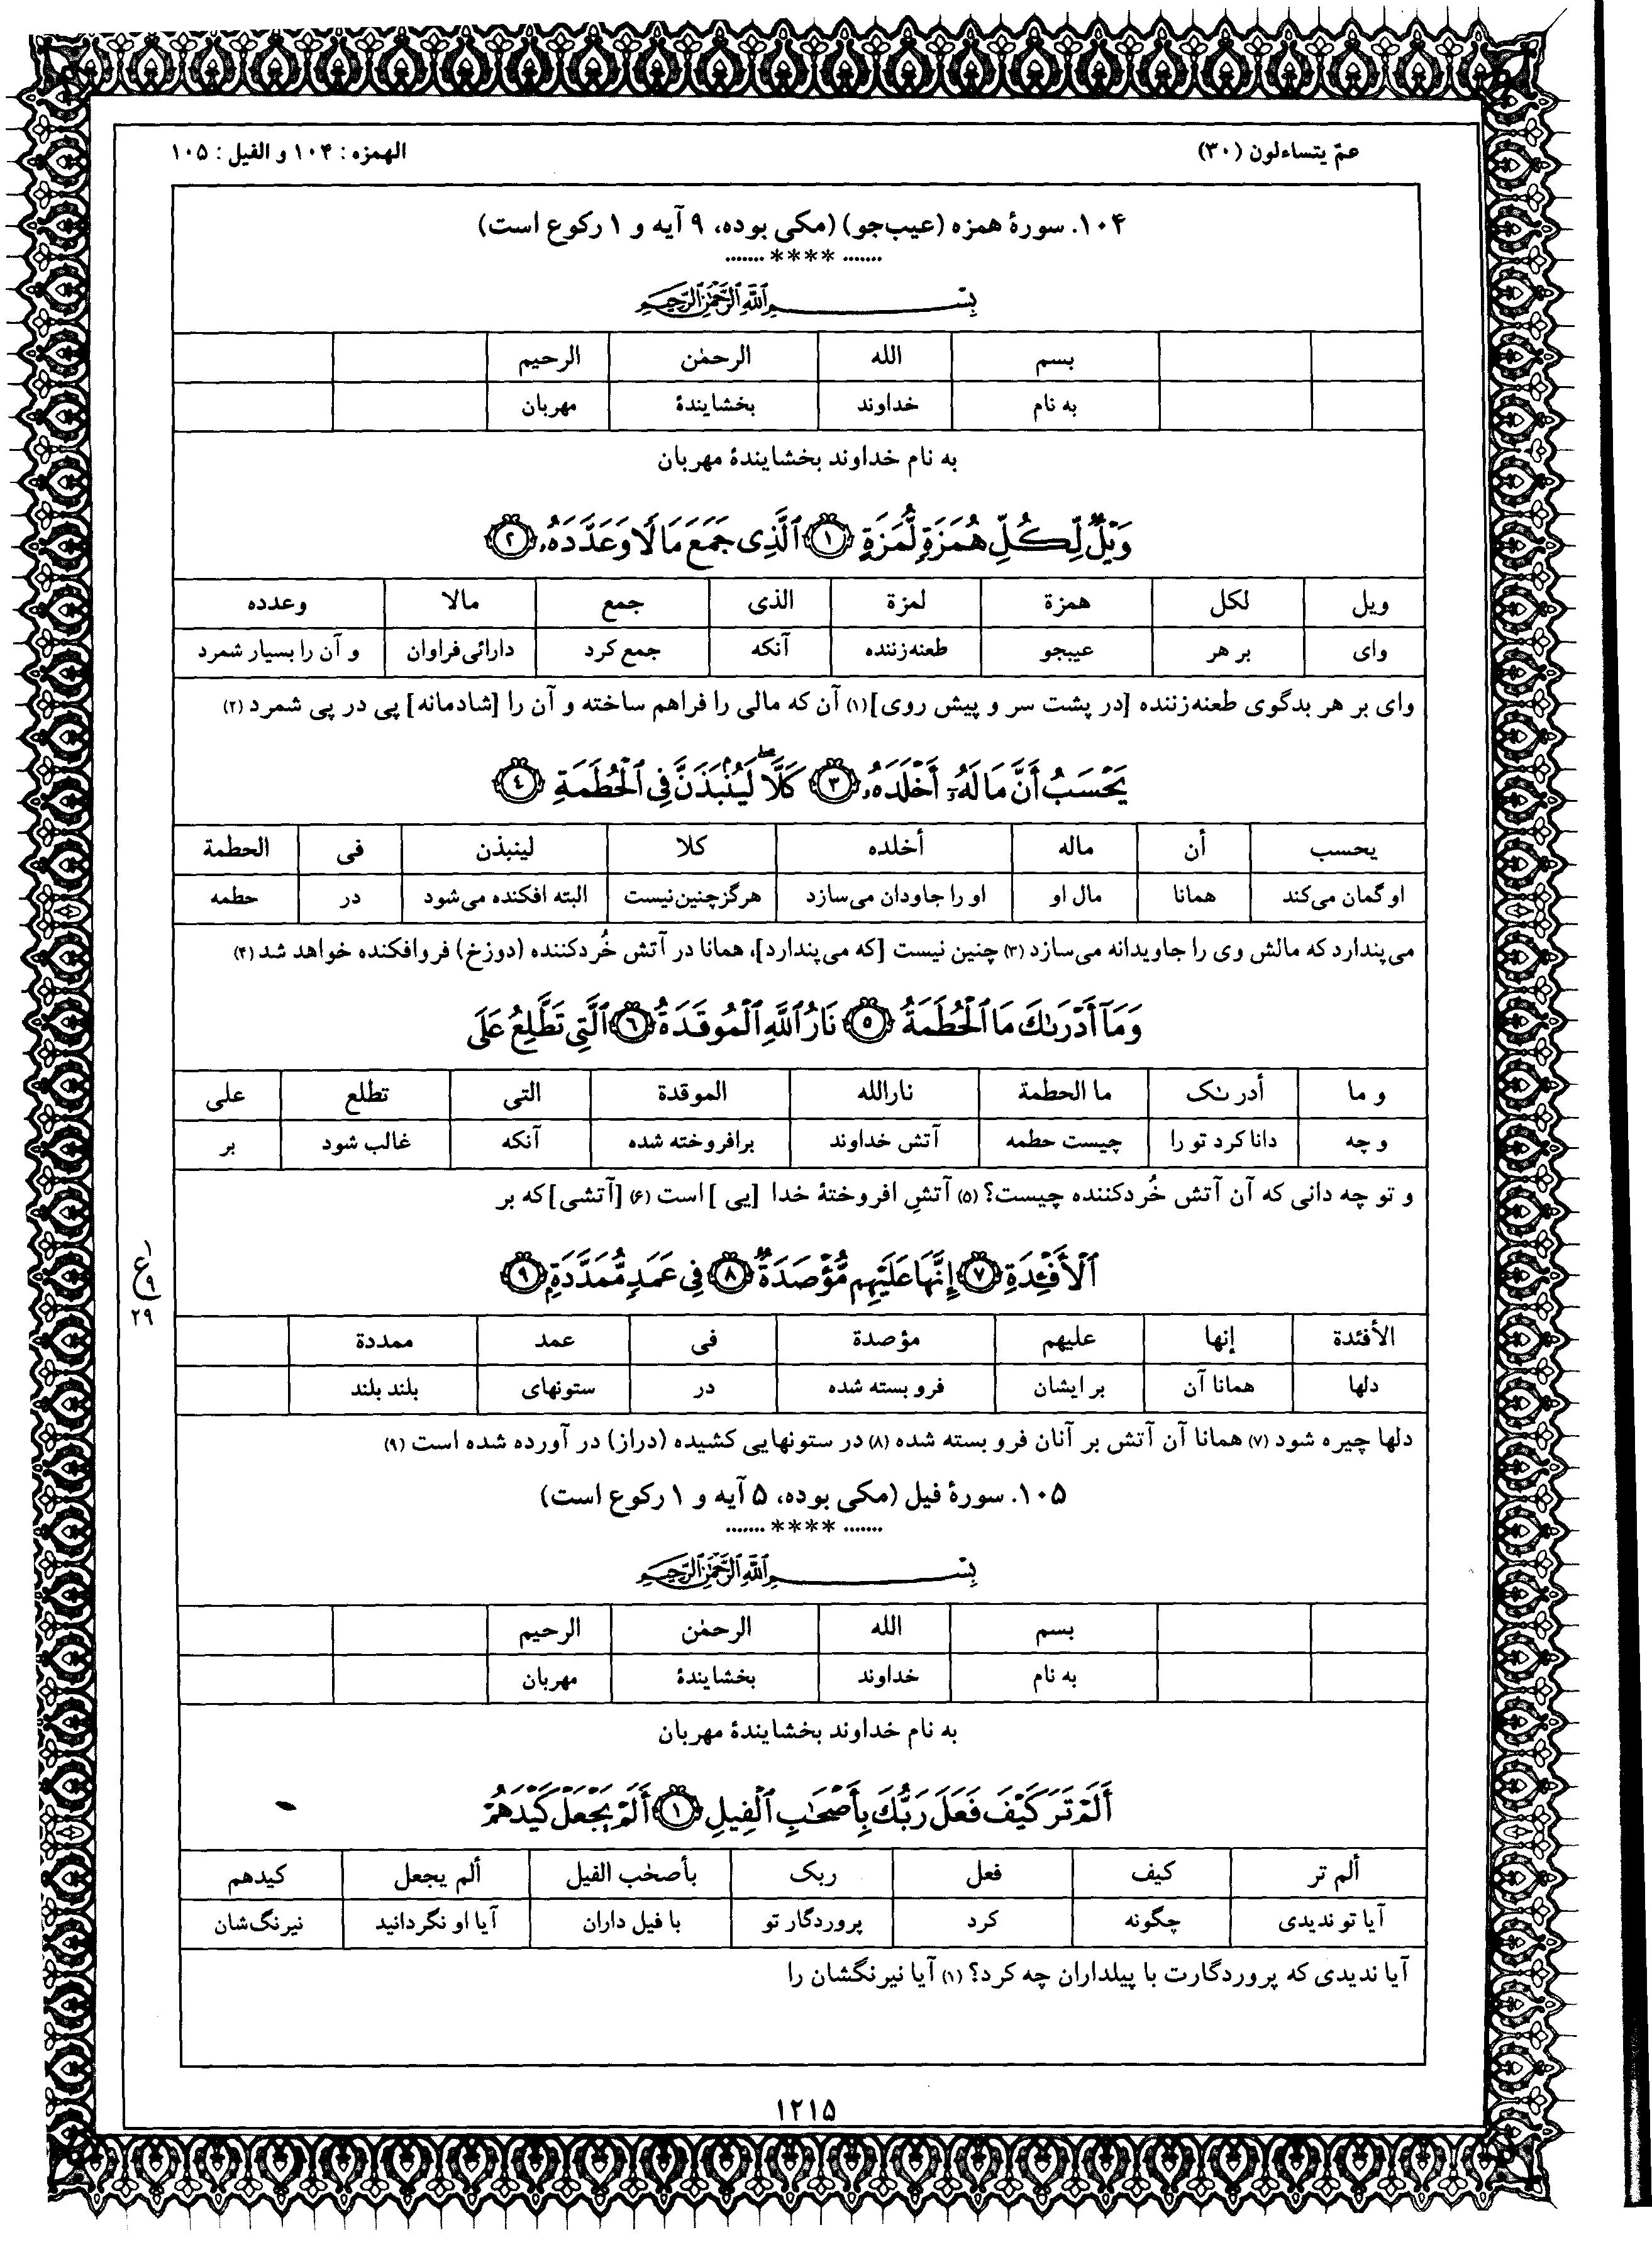 عمّ یتساءلون (۳۰)
الهمزه: ۱۰۴ و الفیل: ۱۰۵
۱۰۴. سورهٔ همزه (عیب‌جو) (مکی بوده، ۹ آیه و ۱ رکوع است)
....... **** .......
بِسْمِ ٱللَّهِ ٱلرَّحْمَٰنِ ٱلرَّحِيمِ
بسم الله الرحمٰن الرحیم
به نام خداوند بخشایندهٔ مهربان
به نام خداوند بخشایندهٔ مهربان
وَيْلٌ لِّكُلِّ هُمَزَةٍ لُّمَزَةٍ ١ ٱلَّذِى جَمَعَ مَالًا وَعَدَّدَهُۥ ٢
ویل لکل همزة لمزة الذی جمع مالا وعدده
وای بر هر عیبجو طعنه‌زننده آنکه جمع کرد دارائی فراوان و آن را بسیار شمرد
وای بر هر بدگوی طعنه‌زننده [در پشت سر و پیش روی](۱) آن که مالی را فراهم ساخته و آن را [شادمانه] پی در پی شمرد (۲)
يَحْسَبُ أَنَّ مَالَهُۥٓ أَخْلَدَهُۥ ٣ كَلَّا ۖ لَيُنۢبَذَنَّ فِى ٱلْحُطَمَةِ ٤
یحسب أن ماله أخلده کلا لینبذن فی الحطمة
او گمان می‌کند همانا مال او او را جاودان می‌سازد هرگز چنین نیست البته افکنده می‌شود در حطمه
می‌پندارد که مالش وی را جاویدانه می‌سازد (۳) چنین نیست [که می‌پندارد]، همانا در آتش خُردکننده (دوزخ) فروافکنده خواهد شد (۴)
وَمَآ أَدْرَىٰكَ مَا ٱلْحُطَمَةُ ٥ نَارُ ٱللَّهِ ٱلْمُوقَدَةُ ٦ ٱلَّتِى تَطَّلِعُ عَلَى
و ما أدرىٰک ما الحطمة نارالله الموقدة التی تطلع علی
و چه دانا کرد تو را چیست حطمه آتش خداوند برافروخته شده آنکه غالب شود بر
و تو چه دانی که آن آتش خُردکننده چیست؟ (۵) آتشِ افروختهٔ خدا [یی] است (۶) [آتشی] که بر
ٱلْأَفْـِٔدَةِ ٧ إِنَّهَا عَلَيْهِم مُّؤْصَدَةٌ ٨ فِى عَمَدٍ مُّمَدَّدَةٍۭ ٩
ع ۱ ۹ ۲۹
الأفئدة إنها علیهم مؤصدة فی عمد ممددة
دلها همانا آن بر ایشان فرو بسته شده در ستونهای بلند بلند
دلها چیره شود (۷) همانا آن آتش بر آنان فرو بسته شده (۸) در ستونهایی کشیده (دراز) در آورده شده است (۹)
۱۰۵. سورهٔ فیل (مکی بوده، ۵ آیه و ۱ رکوع است)
....... **** .......
بِسْمِ ٱللَّهِ ٱلرَّحْمَٰنِ ٱلرَّحِيمِ
بسم الله الرحمٰن الرحیم
به نام خداوند بخشایندهٔ مهربان
به نام خداوند بخشایندهٔ مهربان
أَلَمْ تَرَ كَيْفَ فَعَلَ رَبُّكَ بِأَصْحَٰبِ ٱلْفِيلِ ١ أَلَمْ يَجْعَلْ كَيْدَهُمْ
ألم تر کیف فعل ربک بأصحٰب الفیل ألم یجعل کیدهم
آیا تو ندیدی چگونه کرد پروردگار تو با فیل داران آیا او نگردانید نیرنگ‌شان
آیا ندیدی که پروردگارت با پیلداران چه کرد؟ (۱) آیا نیرنگشان را
۱۲۱۵